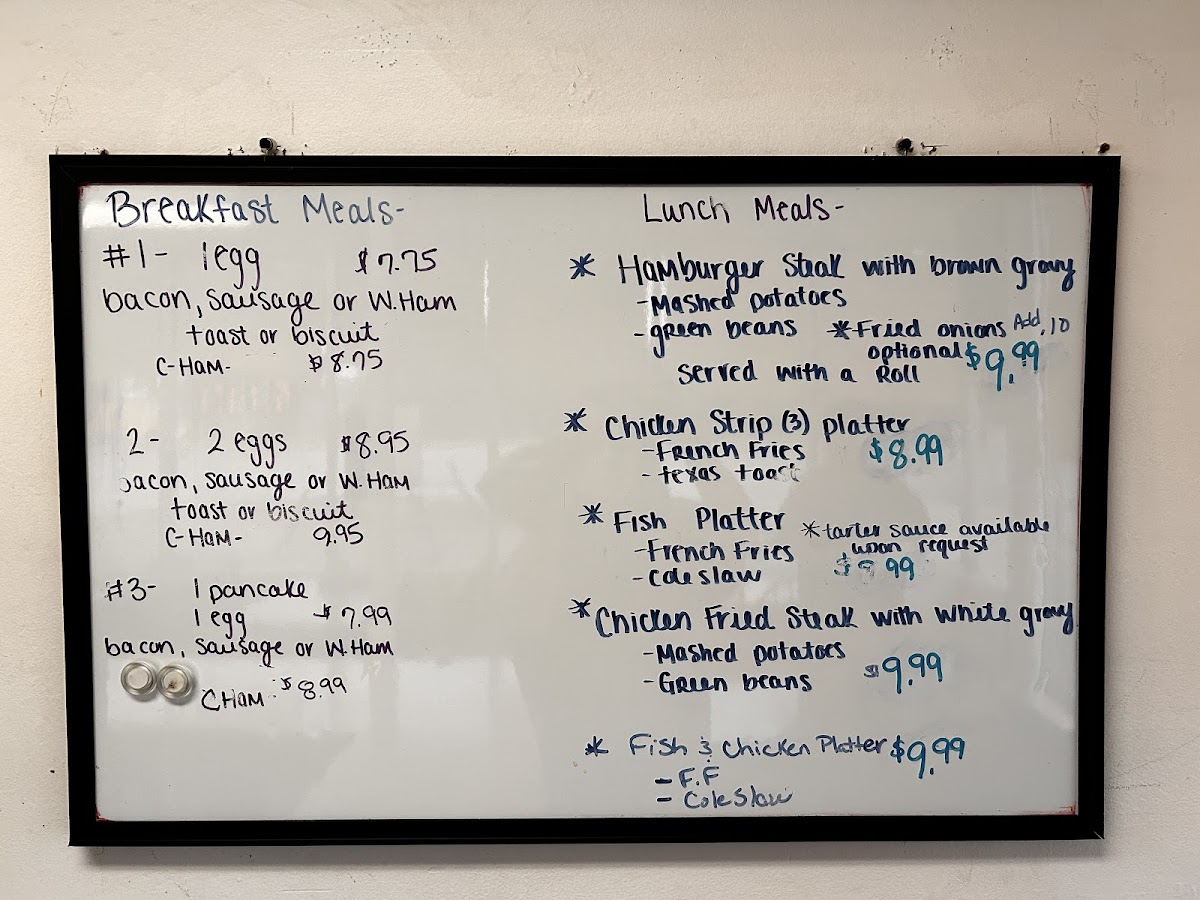 Breakfast Meals-
#1- 1egg $7.75
bacon, sausage or W.Ham
toast or biscuit
C-Ham- $8.75
2- 2 eggs $8.95
bacon, sausage or W.Ham
toast or biscuit
C-Ham- 9.95
#3- 1 pancake
1 egg $7.99
bacon, sausage or W.Ham
CHam- $8.99
Lunch Meals-
* Hamburger Steak with brown gravy
-Mashed potatoes
-green beans *Fried onions Add .10
optional $9.99
Served with a Roll
* Chicken Strip (3) platter
-French Fries $8.99
-texas toast
* Fish Platter *tarter sauce available
-French Fries upon request
-coleslaw
* Chicken Fried Steak with white gravy
-Mashed potatoes
-Green beans $9.99
* Fish & Chicken Platter $9.99
- F.F
- Coleslaw